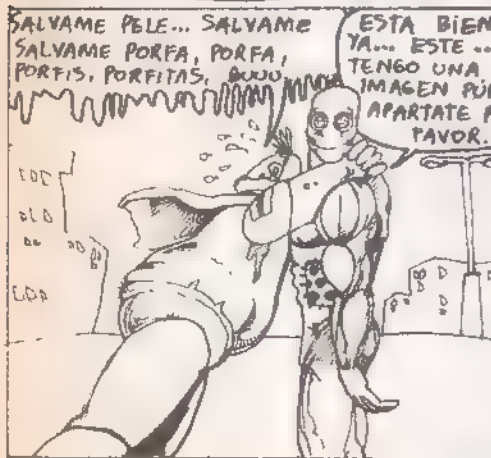 SALVAME PELE... SALVAME
SALVAME PORFA, PORFA,
PORFIS, PORFITAS, BUUU
ESTA BIEN
YA... ESTE ...
TENGO UNA
IMAGEN
APARTATE
FAVOR.